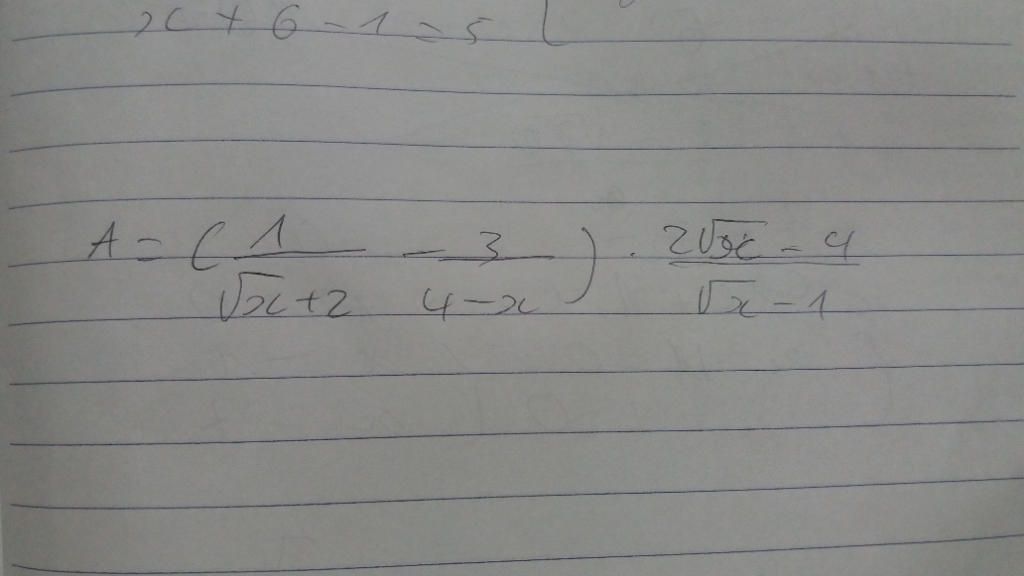 x + 6 - 1 = 5
A = ( 1/(√x+2) - 3/(4-x) ) . (2√x - 4)/(√x - 1)